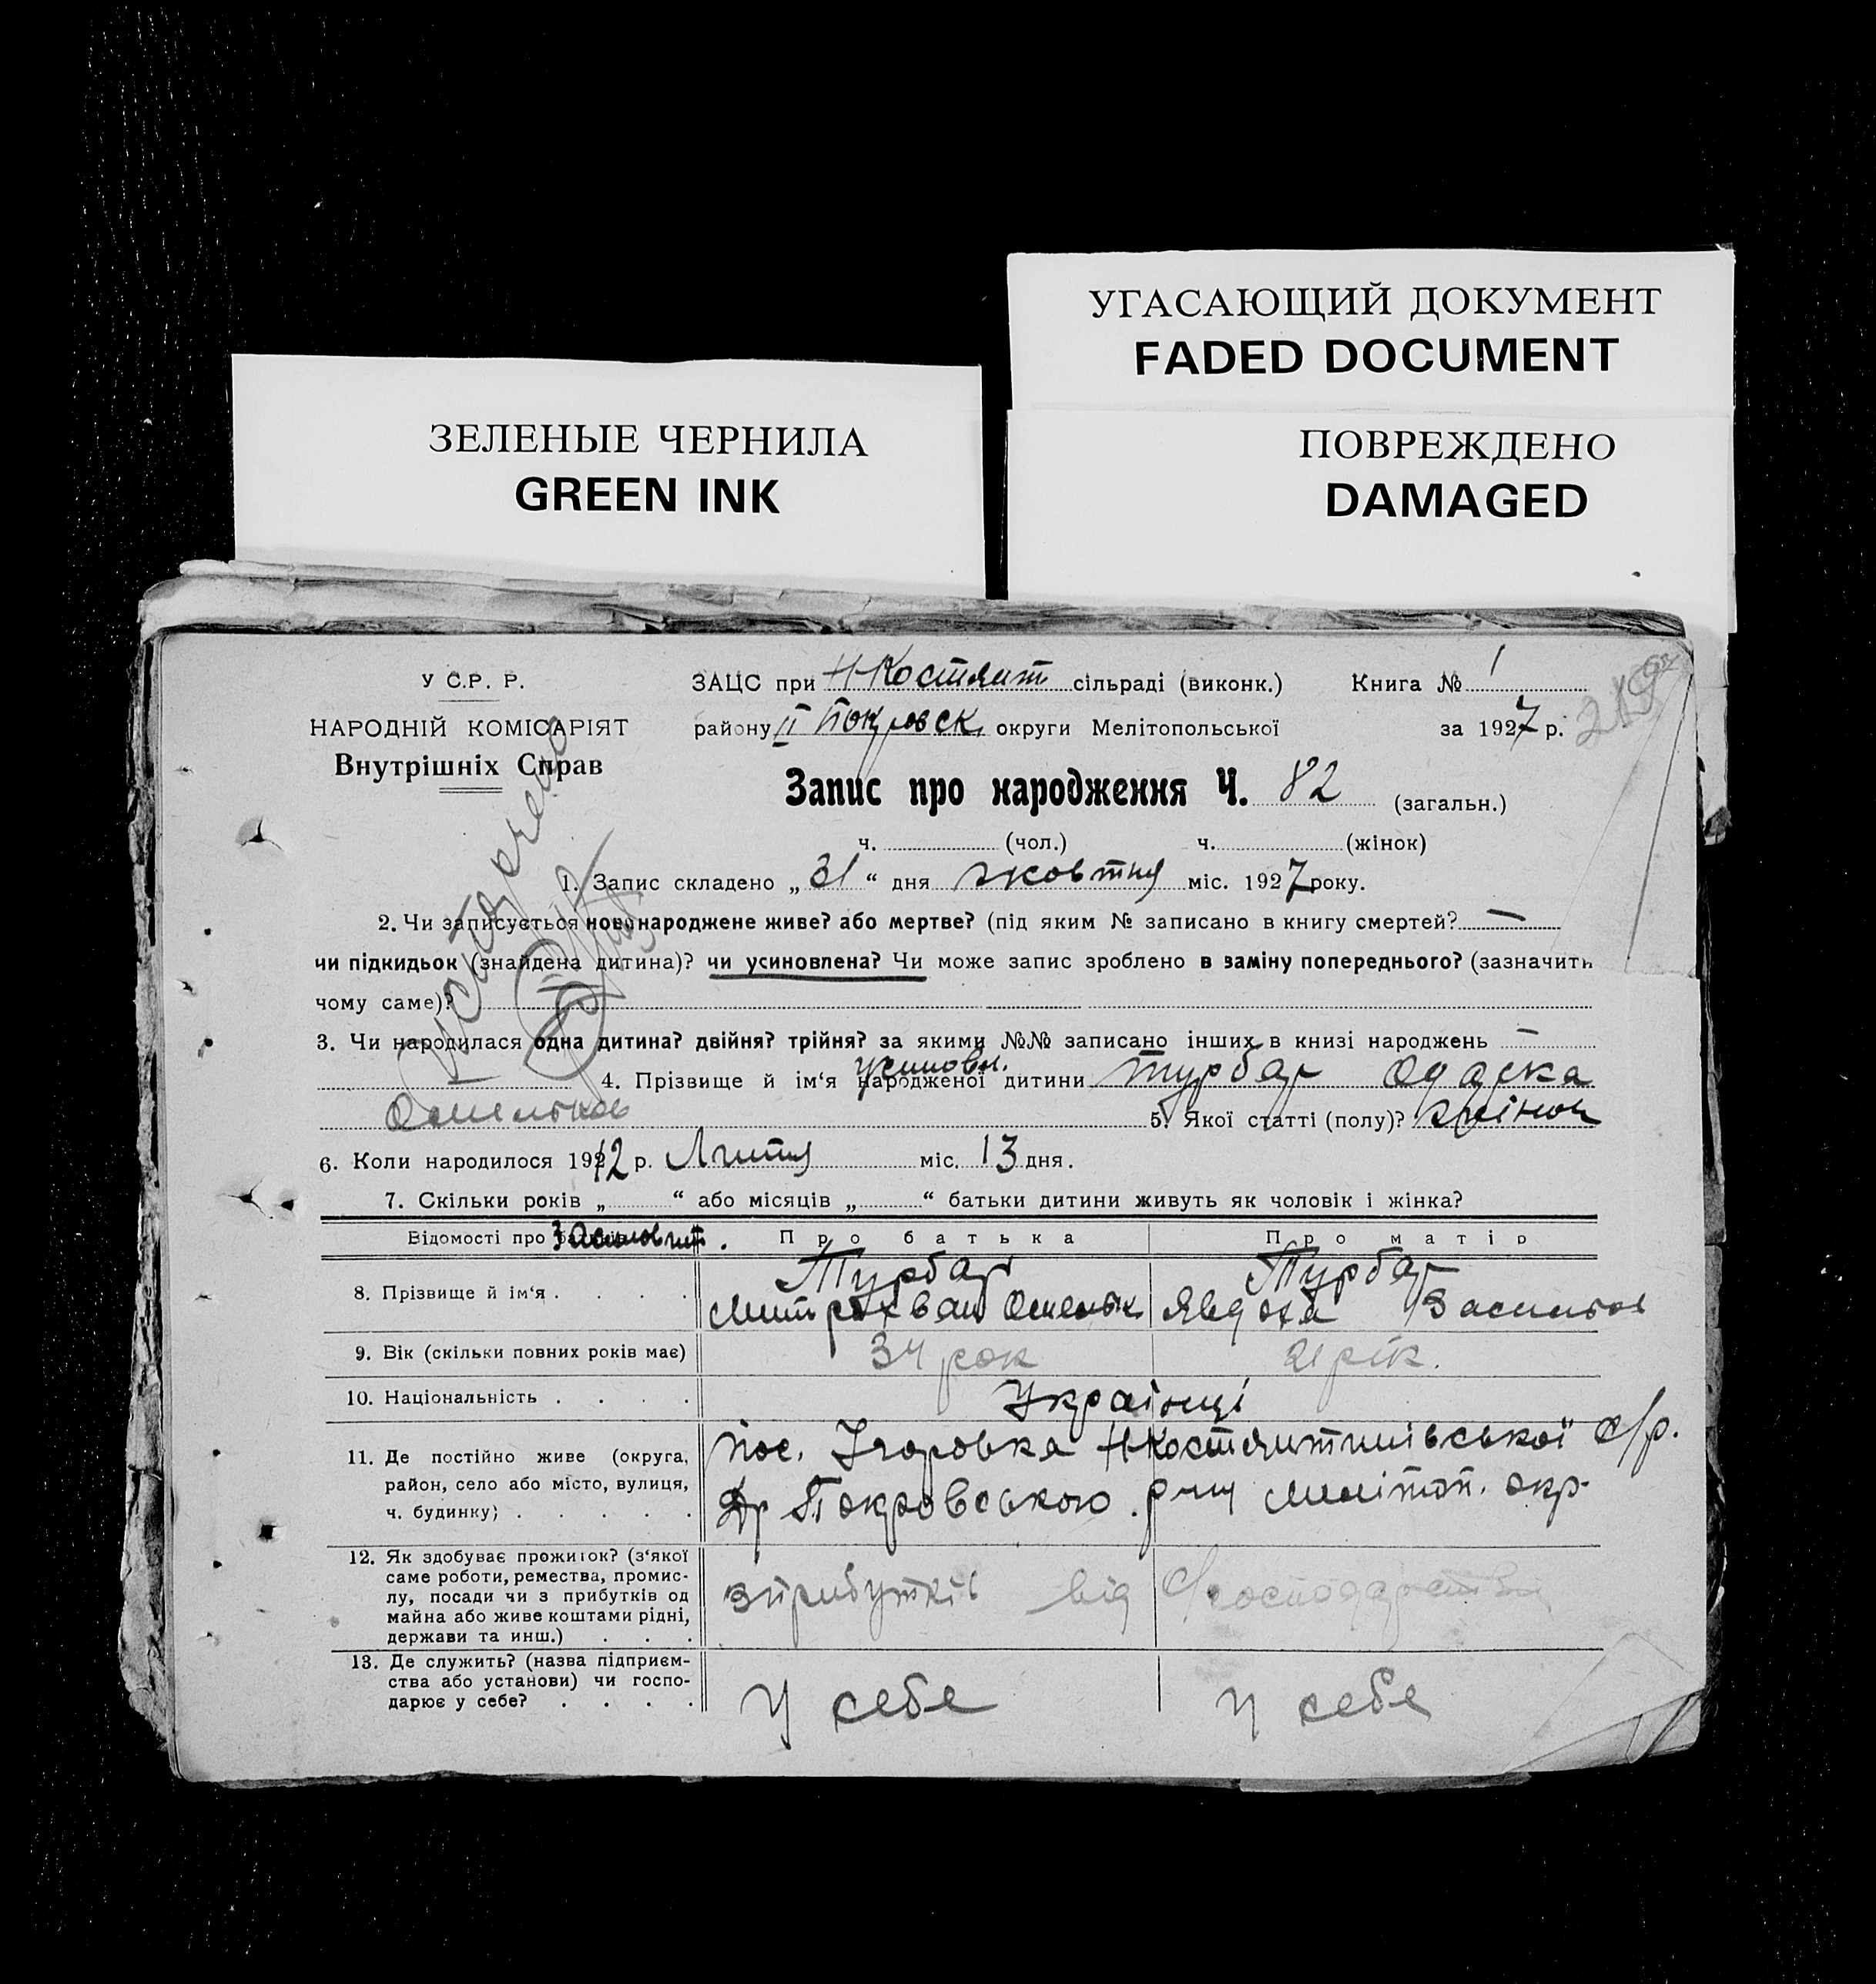 УГАСАЮЩИЙ ДОКУМЕНТ
FADED DOCUMENT
ЗЕЛЕНЫЕ ЧЕРНИЛА
GREEN INK
ПОВРЕЖДЕНО
DAMAGED
У С.Р. Р.
НАРОДНІЙ КОМІСАРІЯТ
Внутрішніх Справ
ЗАЦС при Н-Костянт сільраді (виконк.) Книга № 1
району ІІ Покровск округи Мелітопольської за 1927 р.
Запис про народження Ч. 82 (загальн.)
ч. (чол.) ч. (жінок)
1. Запис складено „ 31 “ дня жовтня міс. 1927 року.
2. Чи записується новонароджене живе? або мертве? (під яким № записано в книгу смертей? —
чи підкидьок (знайдена дитина)? чи усиновлена? Чи може запис зроблено в заміну попереднього? (зазначити
чому саме)?
3. Чи народилася одна дитина? двійня? трійня? за якими №№ записано інших в книзі народжень —
усиновл.
4. Прізвище й ім‘я народженої дитини Турбар
5. Якої статті (полу)? жіноч
6. Коли народилося 1912 р. Лютня міс. 13 дня.
7. Скільки років „ “ або місяців „ “ батьки дитини живуть як чоловік і жінка?
Відомості про Про батька Про матір
8. Прізвище й ім‘я . . . . Турбар Турбар
Митрохван Явдоха Васильов
9. Вік (скільки повних років має) 34 рок 21 рік.
10. Національність . . . . Українці
11. Де постійно живе (округа, район, село або місто, вулиця, ч. будинку; . . . . .
пос. Ігоровка Н-Костянтинівської с/р.
Покровського р-ну Мелітоп. окр.
12. Як здобуває прожиток? (з‘якої
саме роботи, ремества, промис-
лу, посади чи з прибутків од
майна або живе коштами рідні,
держави та инш.) . . .
з прибутків від господарства
13. Де служить? (назва підприєм-
ства або установи) чи госпо-
дарює у себе? . . . .
У себе У себе